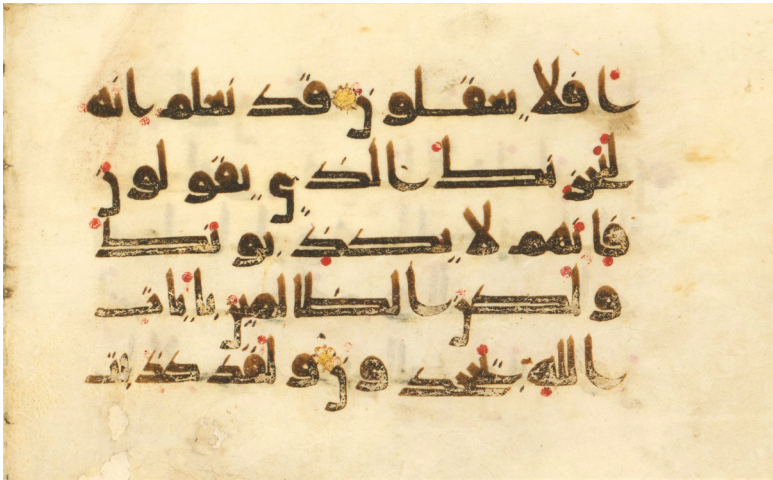 افلا تعقلون قد نعلم انه
ليحزنك الذي يقولون
فانهم لا يكذبونك
ولكن الظالمين بايات
الله يجحدون ولقد كذبت